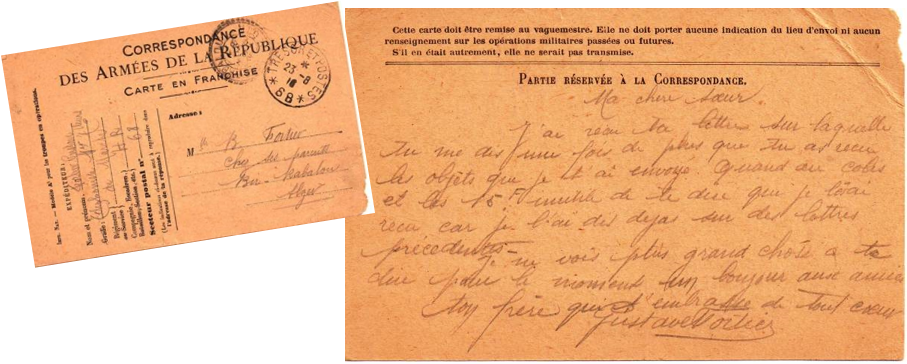 CORRESPONDANCE
DES ARMÉES DE LA RÉPUBLIQUE
CARTE EN FRANCHISE
TRÉSOR ET POSTES
23
8
16
* 68 *
Adresse :
Mlle B. Fortier
Chez ses parents
Alger
EXPÉDITEUR :
Nom et prénoms
Grade :
Secteur postal n° 68
Cette carte doit être remise au vaguemestre. Elle ne doit porter aucune indication du lieu d'envoi ni aucun
renseignement sur les opérations militaires passées ou futures.
S'il en était autrement, elle ne serait pas transmise.
PARTIE RÉSERVÉE À LA CORRESPONDANCE.
Ma chere sœur.
J'ai recu ta lettre sur laquelle
tu me dis une fois de plus que tu as recu
les objets que je t'ai envoyé. Quand au colis
et les 15F inutile de te dire que je l'ai
recu car je l'ai dis dejas sur des lettres
précédentes
Je ne vois plus grand chose a te
dire pour le moment un bonjour aux amies
ton frère qui t'embrasse de tout cœur
Gustave Fortier